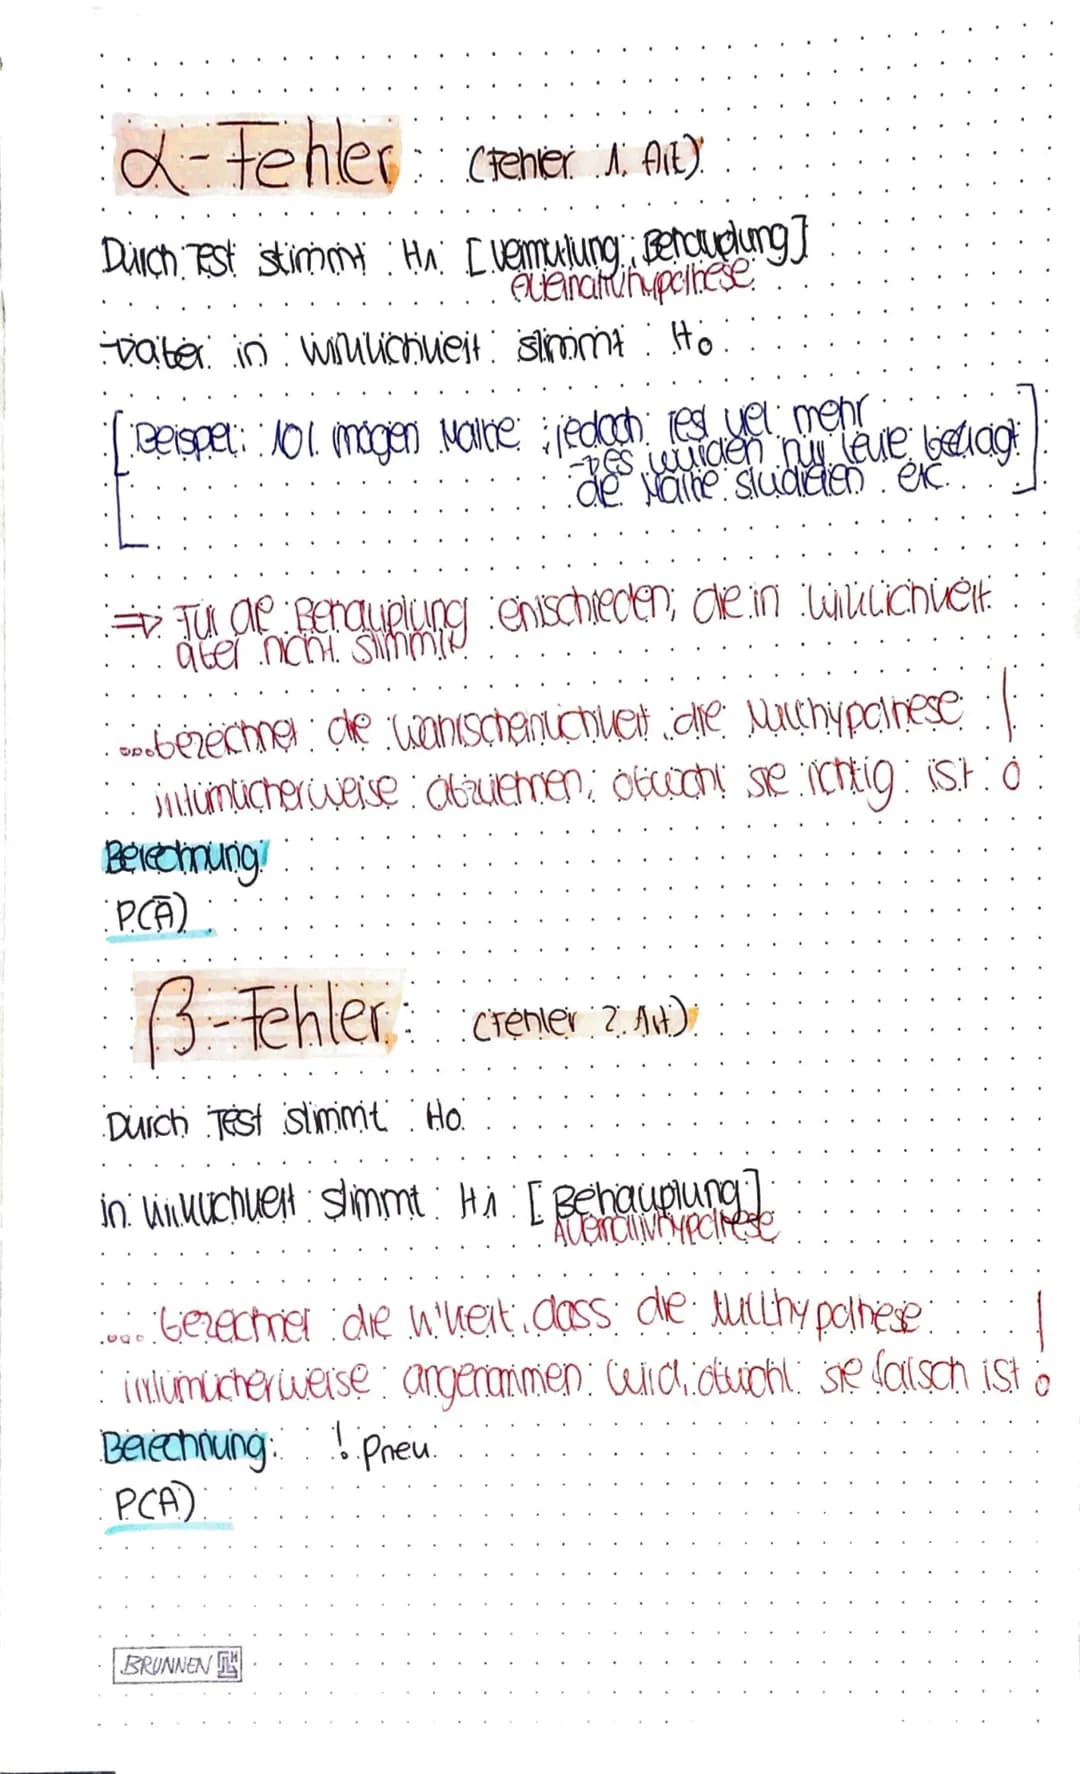 α-Fehler: (Fehler 1. Art)
Durch Test stimmt H₁ [Vermutung, Behauptung]
Alternativhypothese
→ aber in Wirklichkeit stimmt H₀
[Beispiel: 10% mögen Mathe; jedoch Test viel mehr
→ es wurden nur Leute befragt
die Mathe studieren etc.]
⇒ Für die Behauptung entschieden, die in Wirklichkeit
aber nicht stimmt
...berechnet die Wahrscheinlichkeit, die Nullhypothese
irrtümlicherweise abzulehnen, obwohl sie richtig ist!
Berechnung:
P(Ā)
β-Fehler: (Fehler 2. Art)
Durch Test stimmt H₀
in Wirklichkeit stimmt H₁ [Behauptung]
Alternativhypothese
.... berechnet die W'keit, dass die Nullhypothese
irrtümlicherweise angenommen wird, obwohl sie falsch ist!
Berechnung: ! Pneu
P(A)
BRUNNEN